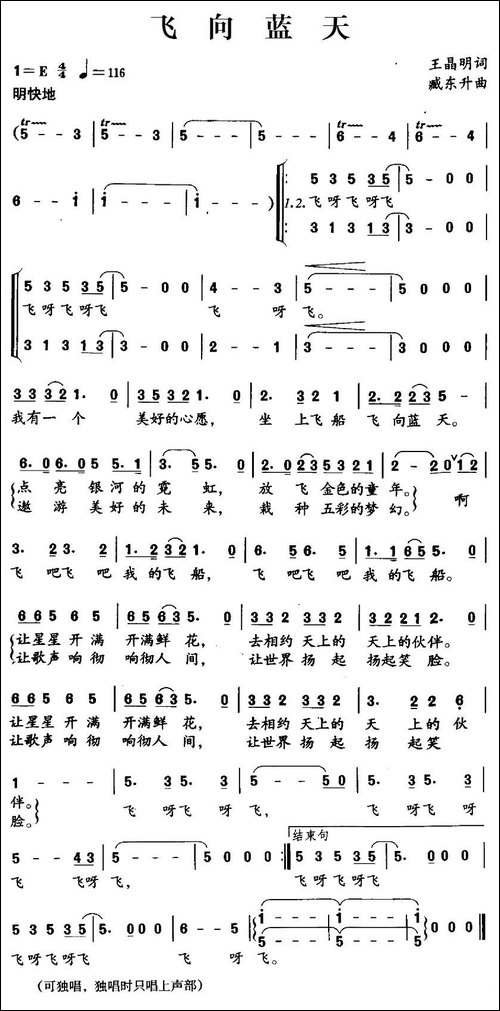 飞向蓝天
1=E 4/4 ♩=116
王晶明词
明快地
臧东升曲
(5 - - 3 | 5 - - 3 | 5 - - - | 5 - - - | 6 - - 4 | 6 - - 4 |
6 - - i | i - - - | i - - - ) 5 3 5 3 5 | 5 - 0 0 |
1.2.飞呀飞呀飞
3 1 3 1 3 | 3 - 0 0 |
5 3 5 3 5 | 5 - 0 0 | 4 - - 3 | 5 - - - | 5 0 0 0 |
飞呀飞呀飞 飞 呀 飞。
3 1 3 1 3 | 3 - 0 0 | 2 - - 1 | 3 - - - | 3 0 0 0 |
3 3 3 2 1. 0 | 3 5 3 2 1. 0 | 2. 3 2 1 | 2. 2 2 3 5. 0 |
我有一个 美好的心愿, 坐 上飞船 飞向蓝天。
6. 0 6. 0 5 5. 1 | 3. 5 5. 0 | 2. 0 2 3 5 3 2 1 | 2 - 2 0 1 2 |
点亮银河的霓虹, 放飞金色的童年。
遨游美好的未来, 栽种五彩的梦幻。 啊
3. 2 3. 2 | 1. 2 3 2 1. 0 | 6. 5 6. 5 | 1. 1 6 5 5. 0 |
飞吧飞吧我的飞船, 飞吧飞吧我的飞船。
6 6 5 6 5 | 6 5 6 3 5. 0 | 3 3 2 3 3 2 | 3 2 2 1 2. 0 |
让星星开满 开满鲜花, 去相约天上的 天上的伙伴。
让歌声响彻 响彻人间, 让世界扬起 扬起笑脸。
6 6 5 6 5 | 6 5 6 3 5. 0 | 3 3 2 3 3 2 | 3. 2 2 6 |
让星星开满 开满鲜花, 去相约天上的 天 上的伙
让歌声响彻 响彻人间, 让世界扬起 扬起笑
1 - - - | 5. 3 5. 3 | 5 - - - | 5 - - 5 0 | 5. 3 5. 3 |
伴。 飞呀飞呀飞, 飞呀飞呀
脸。
结束句
5 - - 4 3 | 5 - - - | 5 0 0 0 :‖ 5 3 5 3 5 | 5. 0 0 0 |
飞 飞呀飞, 飞呀飞呀飞
5 3 5 3 5 | 5. 0 0 0 | 6 - - 5 | i - - - | i - - - | i 0 0 0 ‖
5 - - - | 5 - - - | 5 0 0 0
飞呀飞呀飞 飞 呀 飞。
(可独唱,独唱时只唱上声部)